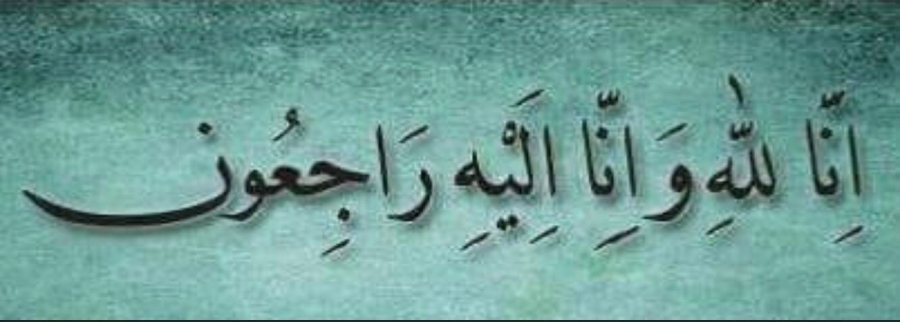 اِنَّا لِلّٰهِ وَ اِنَّا اِلَيْهِ رَاجِعُونَ